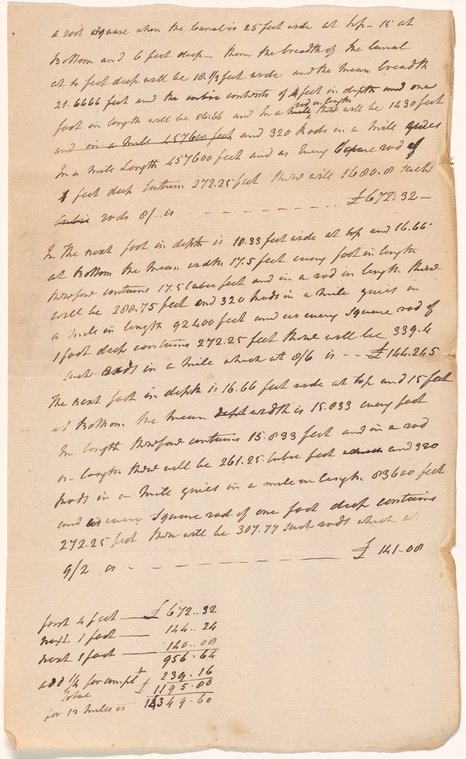 a rod square when the Canal is 25 feet wide at top - 15 at
bottom and 6 feet deep - then the breadth of the Canal
at 4 feet deep will be 18.1/3 feet wide and the mean breadth
21.6666 feet and the cubic contents of 4 feet in depth and one
foot in length will be 86.66 and in a rod in length there will be 1430 feet
and in a mile 457600 feet and 320 Rods in a mile gives
in a mile Length 457600 feet and as Every Square rod of
4 feet deep Contains 272.25 feet there will 1680.8 such
Cubic rods 8/. is - - - - - - - - £672.32 -
In the next foot in depth is 18.33 feet wide at top and 16.66
at bottom the mean width 17.5 feet every foot in length
therefore contains 17.5 Cubic feet and in a rod in length there
will be 288.75 feet and 320 Rods in a mile gives in
a mile in length 92400 feet and as every Square rod of
1 foot deep contains 272.25 feet there will be 339.4
such Rods in a mile which at 8/6 is - - £144.245
The next foot in depth is 16.66 feet wide at top and 15 feet
at bottom the mean depth width is 15.833 every foot
in length therefore contains 15.833 feet and in a rod
in length there will be 261.25 cubic feet and 320
Rods in a mile gives in a mile in length 83600 feet
and as every Square rod of one foot deep contains
272.25 feet there will be 307.77 such rods which at
9/2 is - - - - - - - - £ 141..08
first 4 feet — £672..32
next 1 foot — 144..24
next 1 foot — 140..08
956.64
add 1/4 for compt 239.16
Total £1195.80
for 12 miles is 14349.60